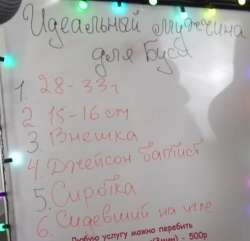 Идеальный мужчина
для Буса
1. 28-33г
2. 15-16 см
3. Внешка
4. Джейсон батист
5. Сиротка
6. Сидевший на игле
Любую услугу можно перебить
- 500р